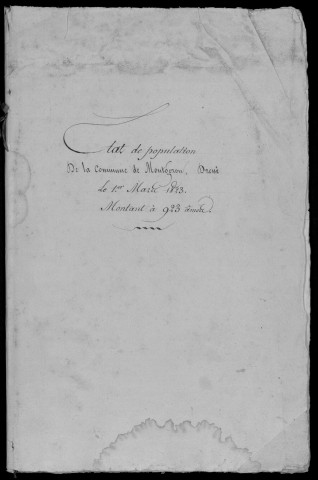 Etat de population
De la Commune de Montgeron, Dressé
Le 1er Mars 1823.
Montant à 923 individus